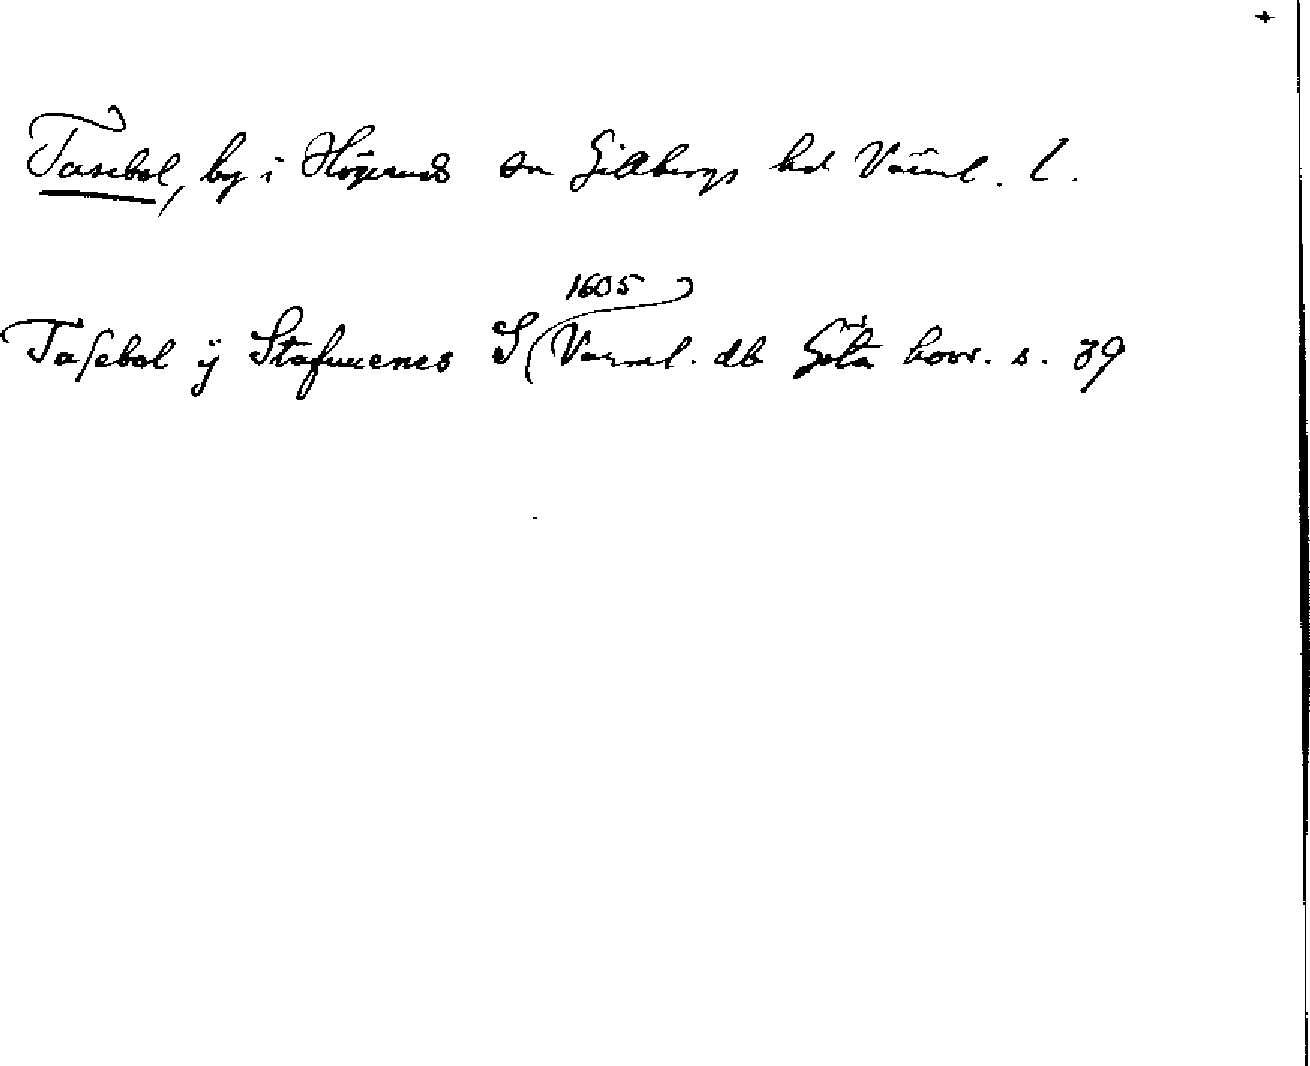 Tasebol, by i Högeruds sn Gillbergs hd Värml. l.
1605
Taſebol ÿ Stafwenes S (Värml. db Göta hovr. s. 39